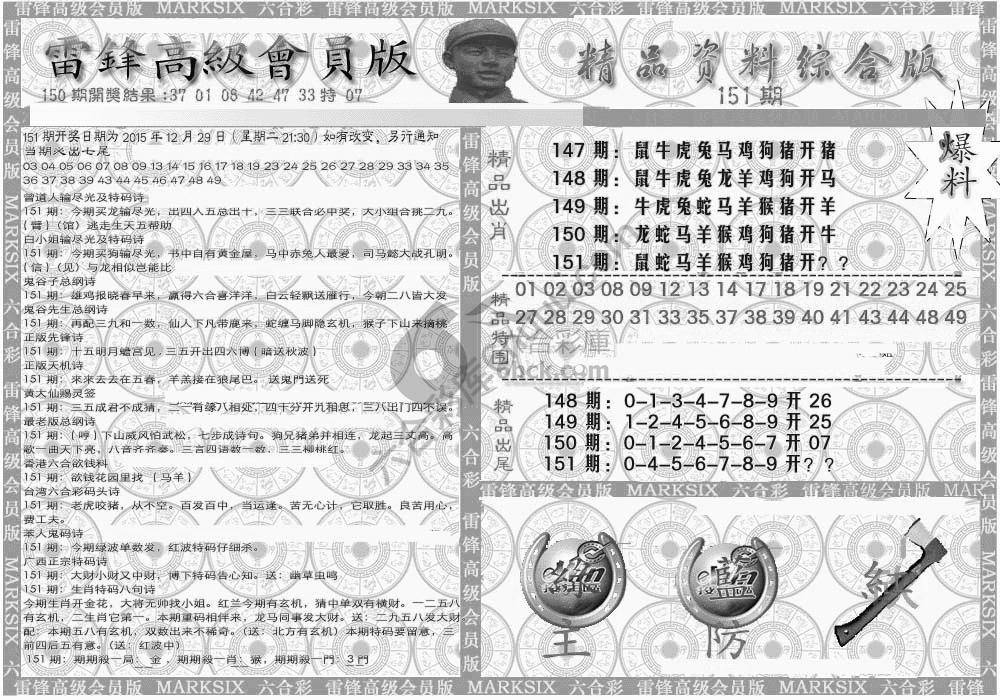 雷锋高级会员版 MARKSIX 六合彩 雷锋高级会员版 MARKSIX 六合彩 雷锋高级会员版 MARKSIX 六合彩 雷锋
雷鋒高級會員版
精品资料综合版
150期開獎結果:37 01 08 42 47 33 特 07
151期
爆料
151期开奖日期为2015年12月29日（星期二21:30）如有改变、另行通知
当期必出七尾
03 04 05 06 07 08 09 13 14 15 16 17 18 19 23 24 25 26 27 28 29 33 34 35
36 37 38 39 43 44 45 46 47 48 49
曾道人输尽光及特码诗
151期：今期买龙输尽光，出四入五总出十，三三联合必中奖，大小组合挑二九。
{臂}（馆）逃走生天五帮助
白小姐输尽光及特码诗
151期：今期买狗输尽光，书中自有黄金屋，马中赤兔人最爱，司马懿大战孔明。
{信}（见）与龙相似岂能比
鬼谷子总纲诗
151期：雄鸡报晓春早来，赢得六合喜洋洋，白云轻飘送雁行，今朝二八皆大发
鬼谷先生总纲诗
151期：再配三九和一数，仙人下凡带鹿来，蛇缠马脚隐玄机，猴子下山来摘桃
正版先锋诗
151期：十五明月蟾宫见，三五开出四六博{暗送秋波}
正版天机诗
151期：来来去去在五春，羊羔接在狼尾巴。送鬼門送死
黄大仙赐灵签
151期：三五成君不成猜，二一有缘八相处，四十分开九和思，三八出门四不误。
最老版总纲诗
151期：{哼}下山威风怕武松，七步成诗句。狗兄猪弟并相连，龙起三丈高。高
歌一曲天下亮，八音齐齐奏。三言四语数一数，三三柳桃红。
香港六合欲钱料
151期：欲钱花园里找 {马羊}
台湾六合彩码头诗
151期：老虎咬猪，从不空。百发百中，当运逢。苦无心计，它取胜。良苦用心，
费工夫。
本人鬼码诗
151期：今期绿波单数发，红波特码仔细杀。
广西正宗特码诗
151期：大财小财又中财，博下特码告心知。送：幽草虫鸣
151期：生肖特码八句诗
今期生肖开金花，大将无帅找小姐。红兰今期有玄机，猜中单双有横财。一二五八
有玄机，二生肖它第一。本期重码相伴来，龙马同事发大财。送：二九五八发大财
配：本期五八有玄机，双数出来不稀奇。（送：北方有玄机）本期特码要留意，三
前四后五有意。（送：红波中）
151期：期期殺一局：金，期期殺一肖：猴，期期殺一門：3門
精品出肖
147期：鼠牛虎兔马鸡狗猪开猪
148期：鼠牛虎兔龙羊鸡狗开马
149期：牛虎兔蛇马羊猴猪开羊
150期：龙蛇马羊猴鸡狗猪开牛
151期：鼠蛇马羊猴鸡狗猪开？？
精品特围
01 02 03 08 09 12 13 14 17 18 19 21 22 23 24 25
27 28 29 30 31 33 35 37 38 39 40 41 43 44 48 49
六合彩庫
6hck.com
精品出尾
148期：0-1-3-4-7-8-9开26
149期：1-2-4-5-6-8-9开25
150期：0-1-2-4-5-6-7开07
151期：0-4-5-6-7-8-9开？？
雷锋高级会员版 MARKSIX 六合彩 雷锋高级会员版
主
防
雷锋高级会员版 MARKSIX 六合彩 雷锋高级会员版 MARKSIX 六合彩 雷锋高级会员版 MARKSIX 六合彩 雷锋